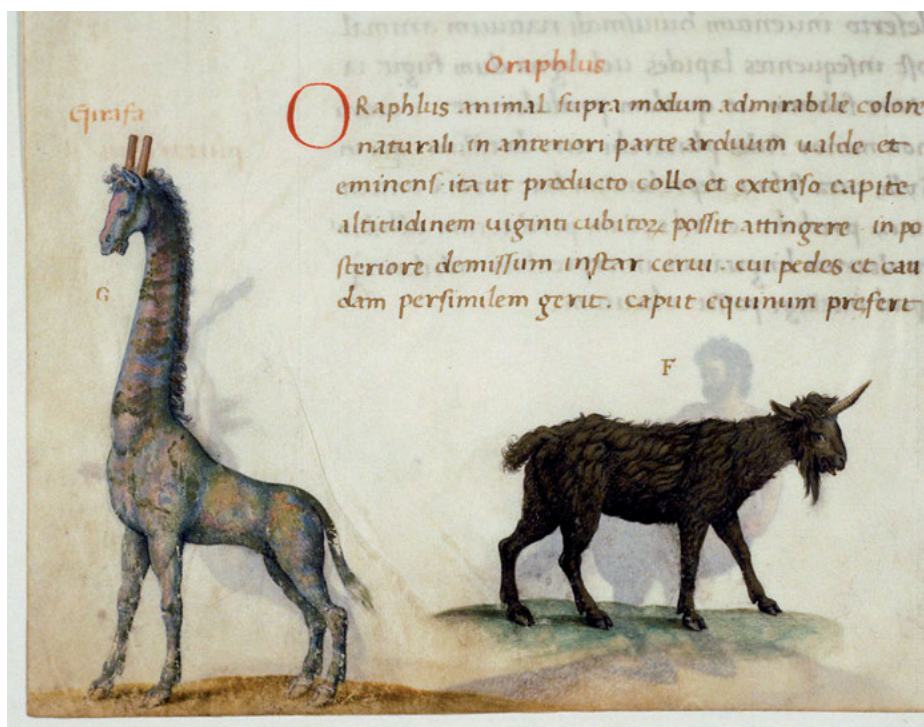 Oraphlus
Girafa
ORaphlus animal supra modum admirabile colore
naturali in anteriori parte arduum ualde et
eminens ita ut producto collo et extenso capite
altitudinem uiginti cubitoꝝ possit attingere in po
steriore demissum instar cerui. cui pedes et cau
dam persimilem gerit. caput equinum prefert
G
F